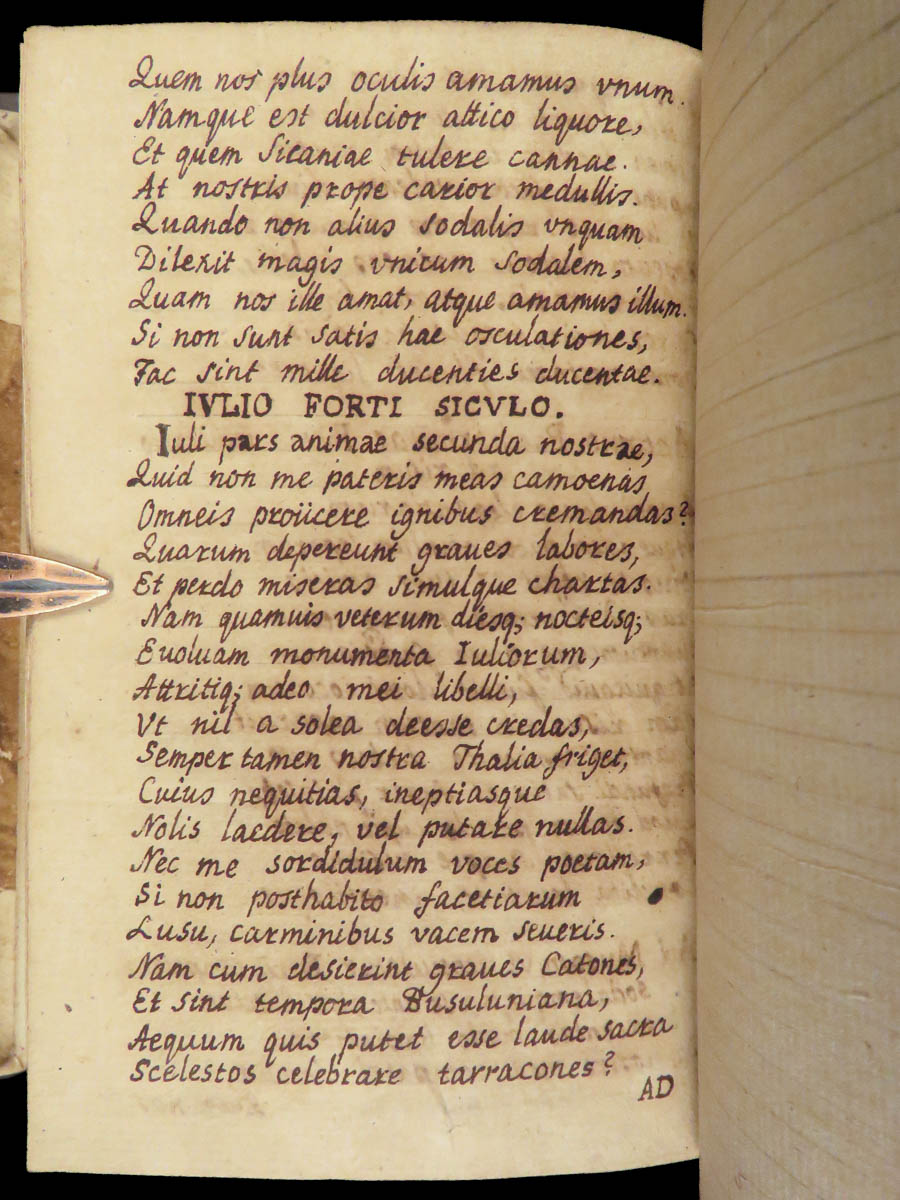 Quem nos plus oculis amamus vnum.
Namque est dulcior attico liquore,
Et quem Sicaniae tulere cannae.
At nostris prope carior medullis.
Quando non alius sodalis vnquam
Dilexit magis vnicum sodalem,
Quam nos ille amat, atque amamus illum.
Si non sunt satis hae osculationes,
Fac sint mille ducenties ducentae.
IVLIO FORTI SICVLO.
Iuli pars animae secunda nostrae,
Quid non me pateris meas camoenas
Omneis proiicere ignibus cremandas?
Quarum depereunt graues labores,
Et perdo miseras simulque chartas.
Nam quamuis veterum diesq; nocteisq;
Euoluam monumenta Iuliorum,
Attritiq; adeo mei libelli,
Vt nil a solea deesse credas,
Semper tamen nostra Thalia friget,
Cuius nequitias, ineptiasque
Nolis laedere, vel putare nullas.
Nec me sordidulum voces poetam,
Si non posthabito facetiarum
Lusu, carminibus vacem seueris.
Nam cum desierint graues Catones,
Et sint tempora Dusuluniana,
Aequum quis putet esse laude sacra
Scelestos celebrare tarracones?
AD